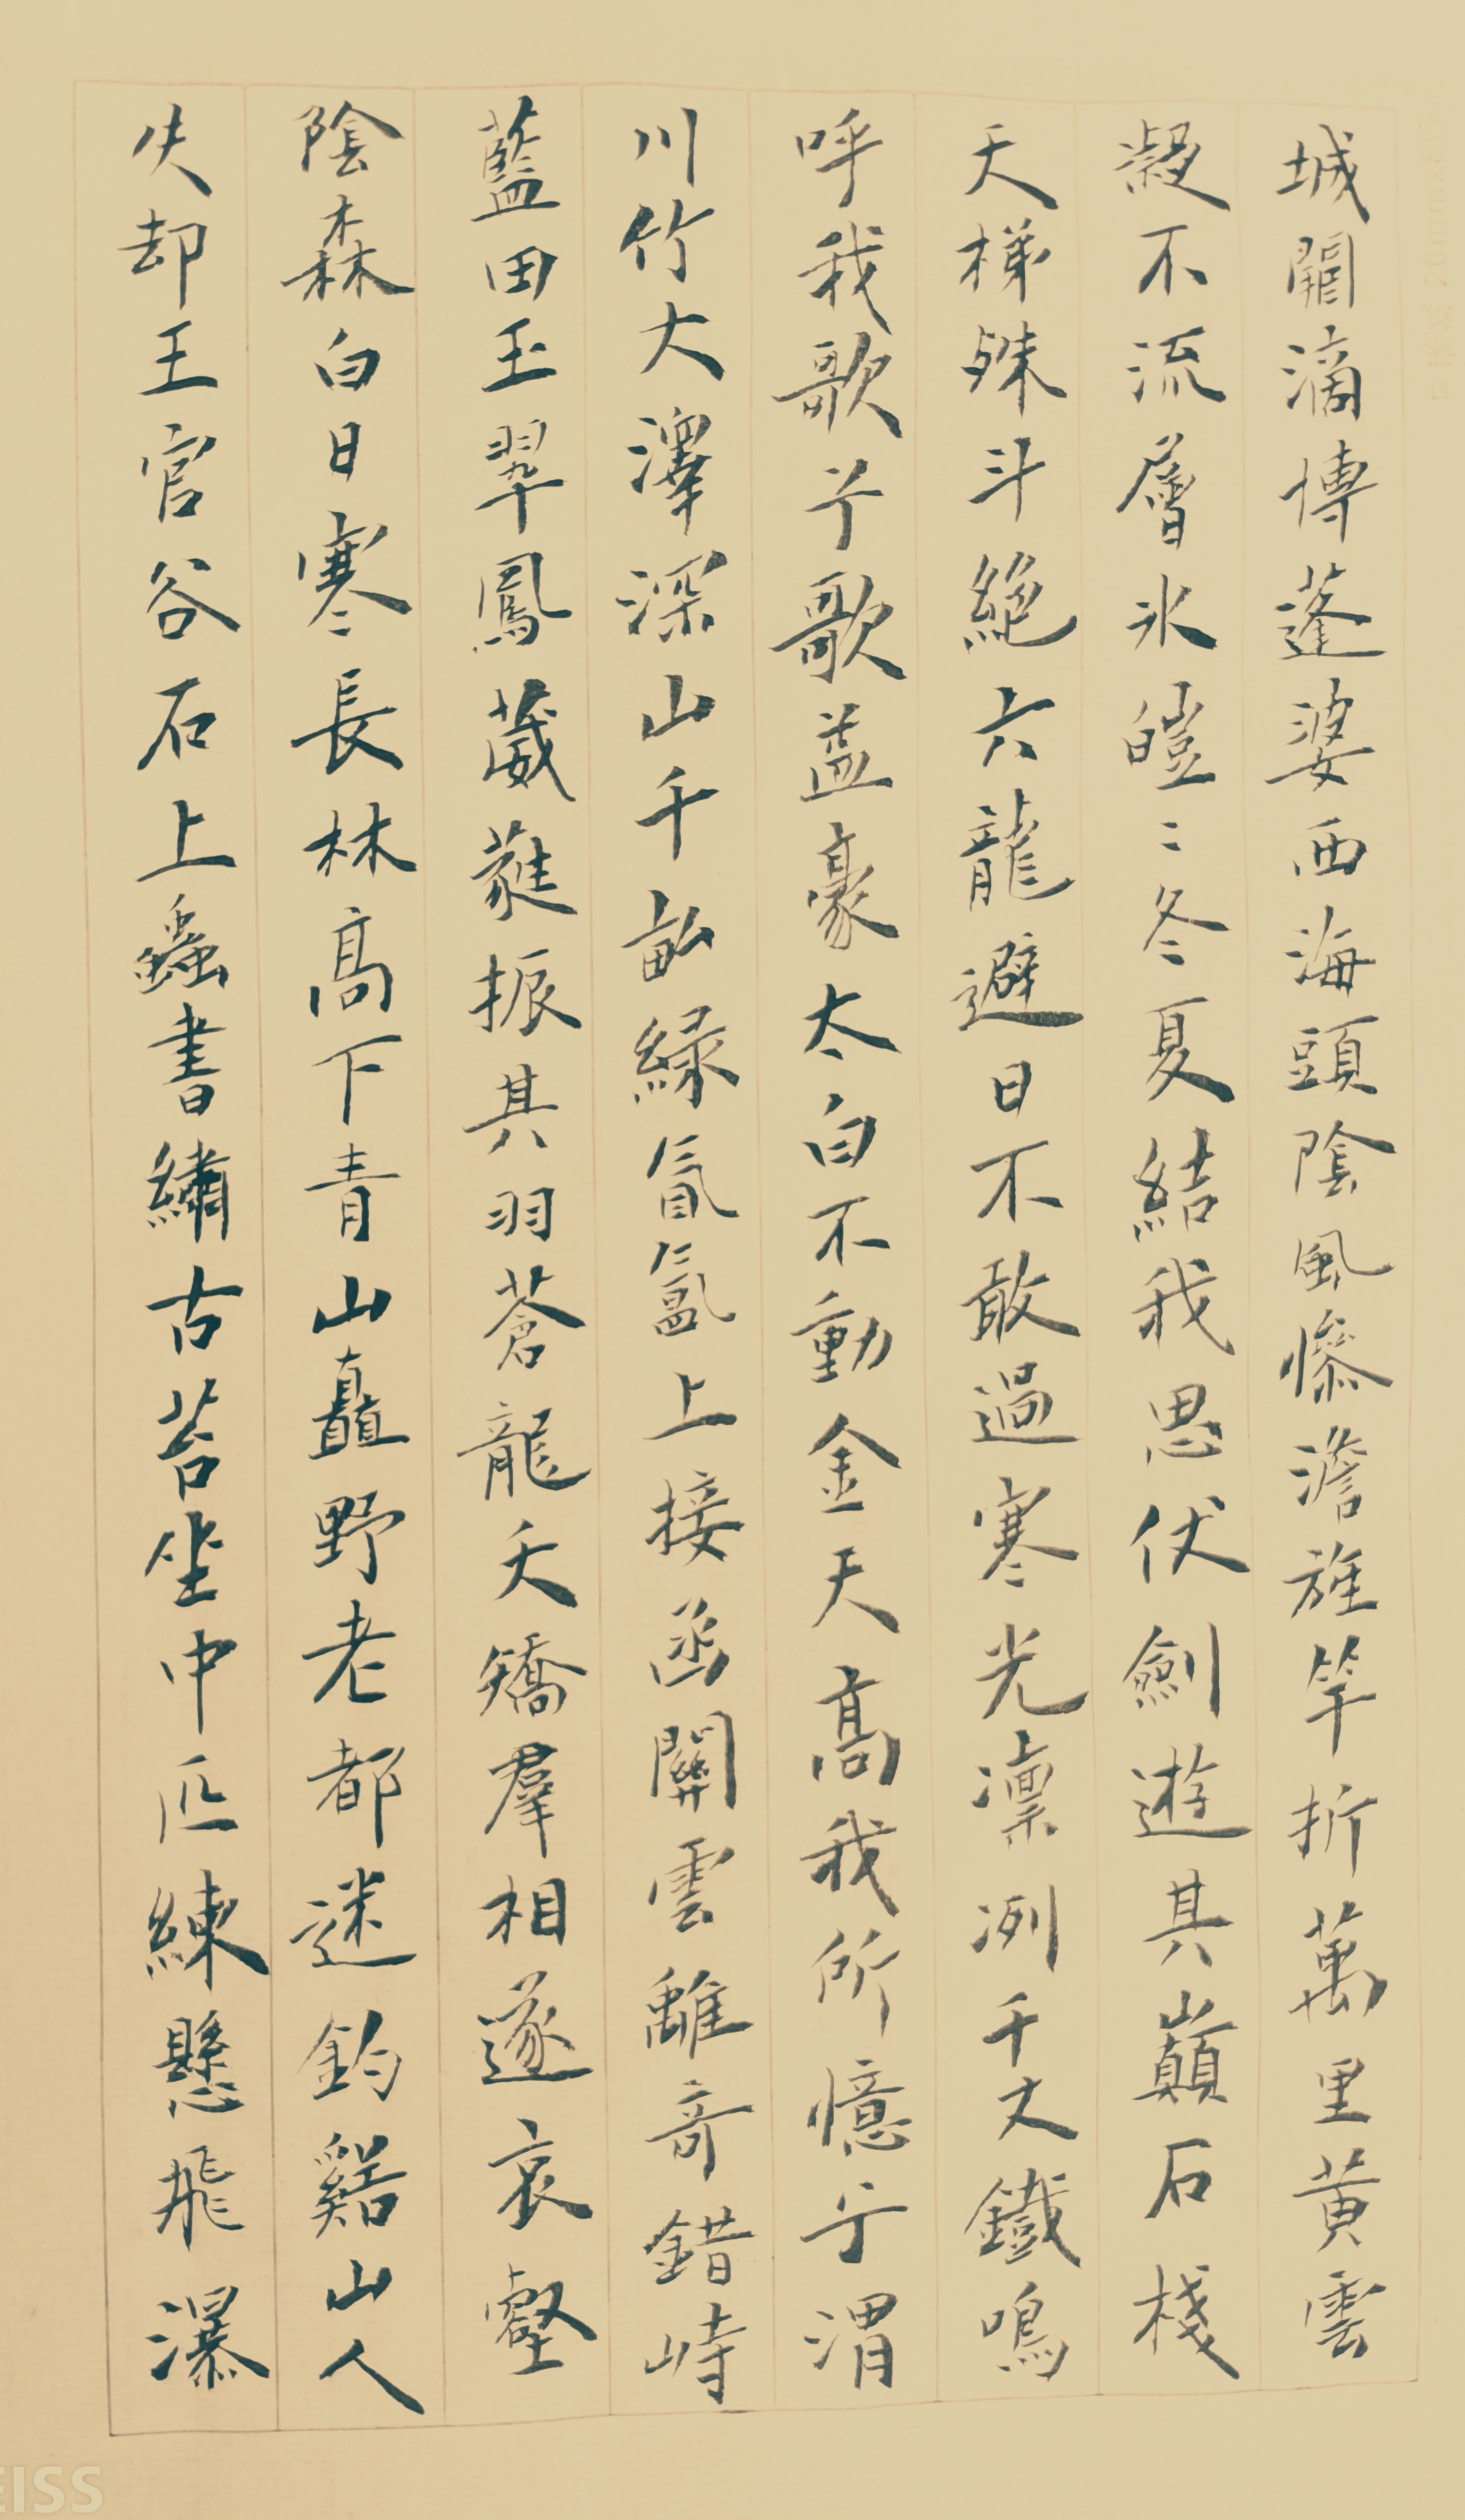 城關滴博蓬婆西海頭陰風慘澹旌竿折萬里黃雲
凝不流層冰皚〻冬夏結我思伏劍遊其巔石棧
天梯殊斗絕六龍避日不敢過寒光凛冽千丈鐵鳴
呼我歌兮歌益豪太白不動金天高我所憶兮渭
川竹大澤深山千畝綠氤氳上接函關雲離奇錯峙
藍田玉翠鳳葳蕤振其羽蒼龍夭矯羣相逐哀壑
陰森白日寒長林高下青山矗野老都迷釣谿山人
失却王官谷石上蟲書繡古苔坐中匹練懸飛瀑
EISS